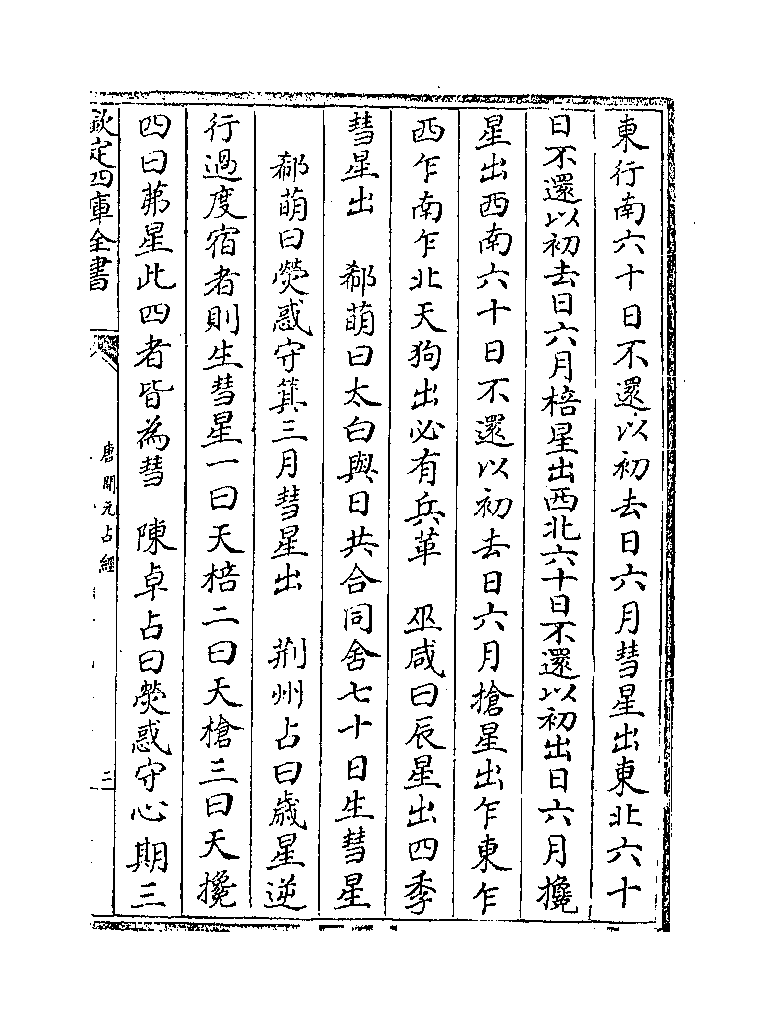 東行南六十日不還以初去日六月彗星出東北六十
日不還以初去日六月棓星出西北六十日不還以初出日六月攙
星出西南六十日不還以初去日六月搶星出乍東乍
西乍南乍北天狗出必有兵革　巫咸曰辰星出四季
彗星出　郗萌曰太白與日共合同舍七十日生彗星
郗萌曰熒惑守箕三月彗星出　荆州占曰歳星逆
行過度宿者則生彗星一曰天棓二曰天槍三曰天攙
四曰茀星此四者皆為彗　陳卓占曰熒惑守心期三
欽定四庫全書
唐開元占經
三